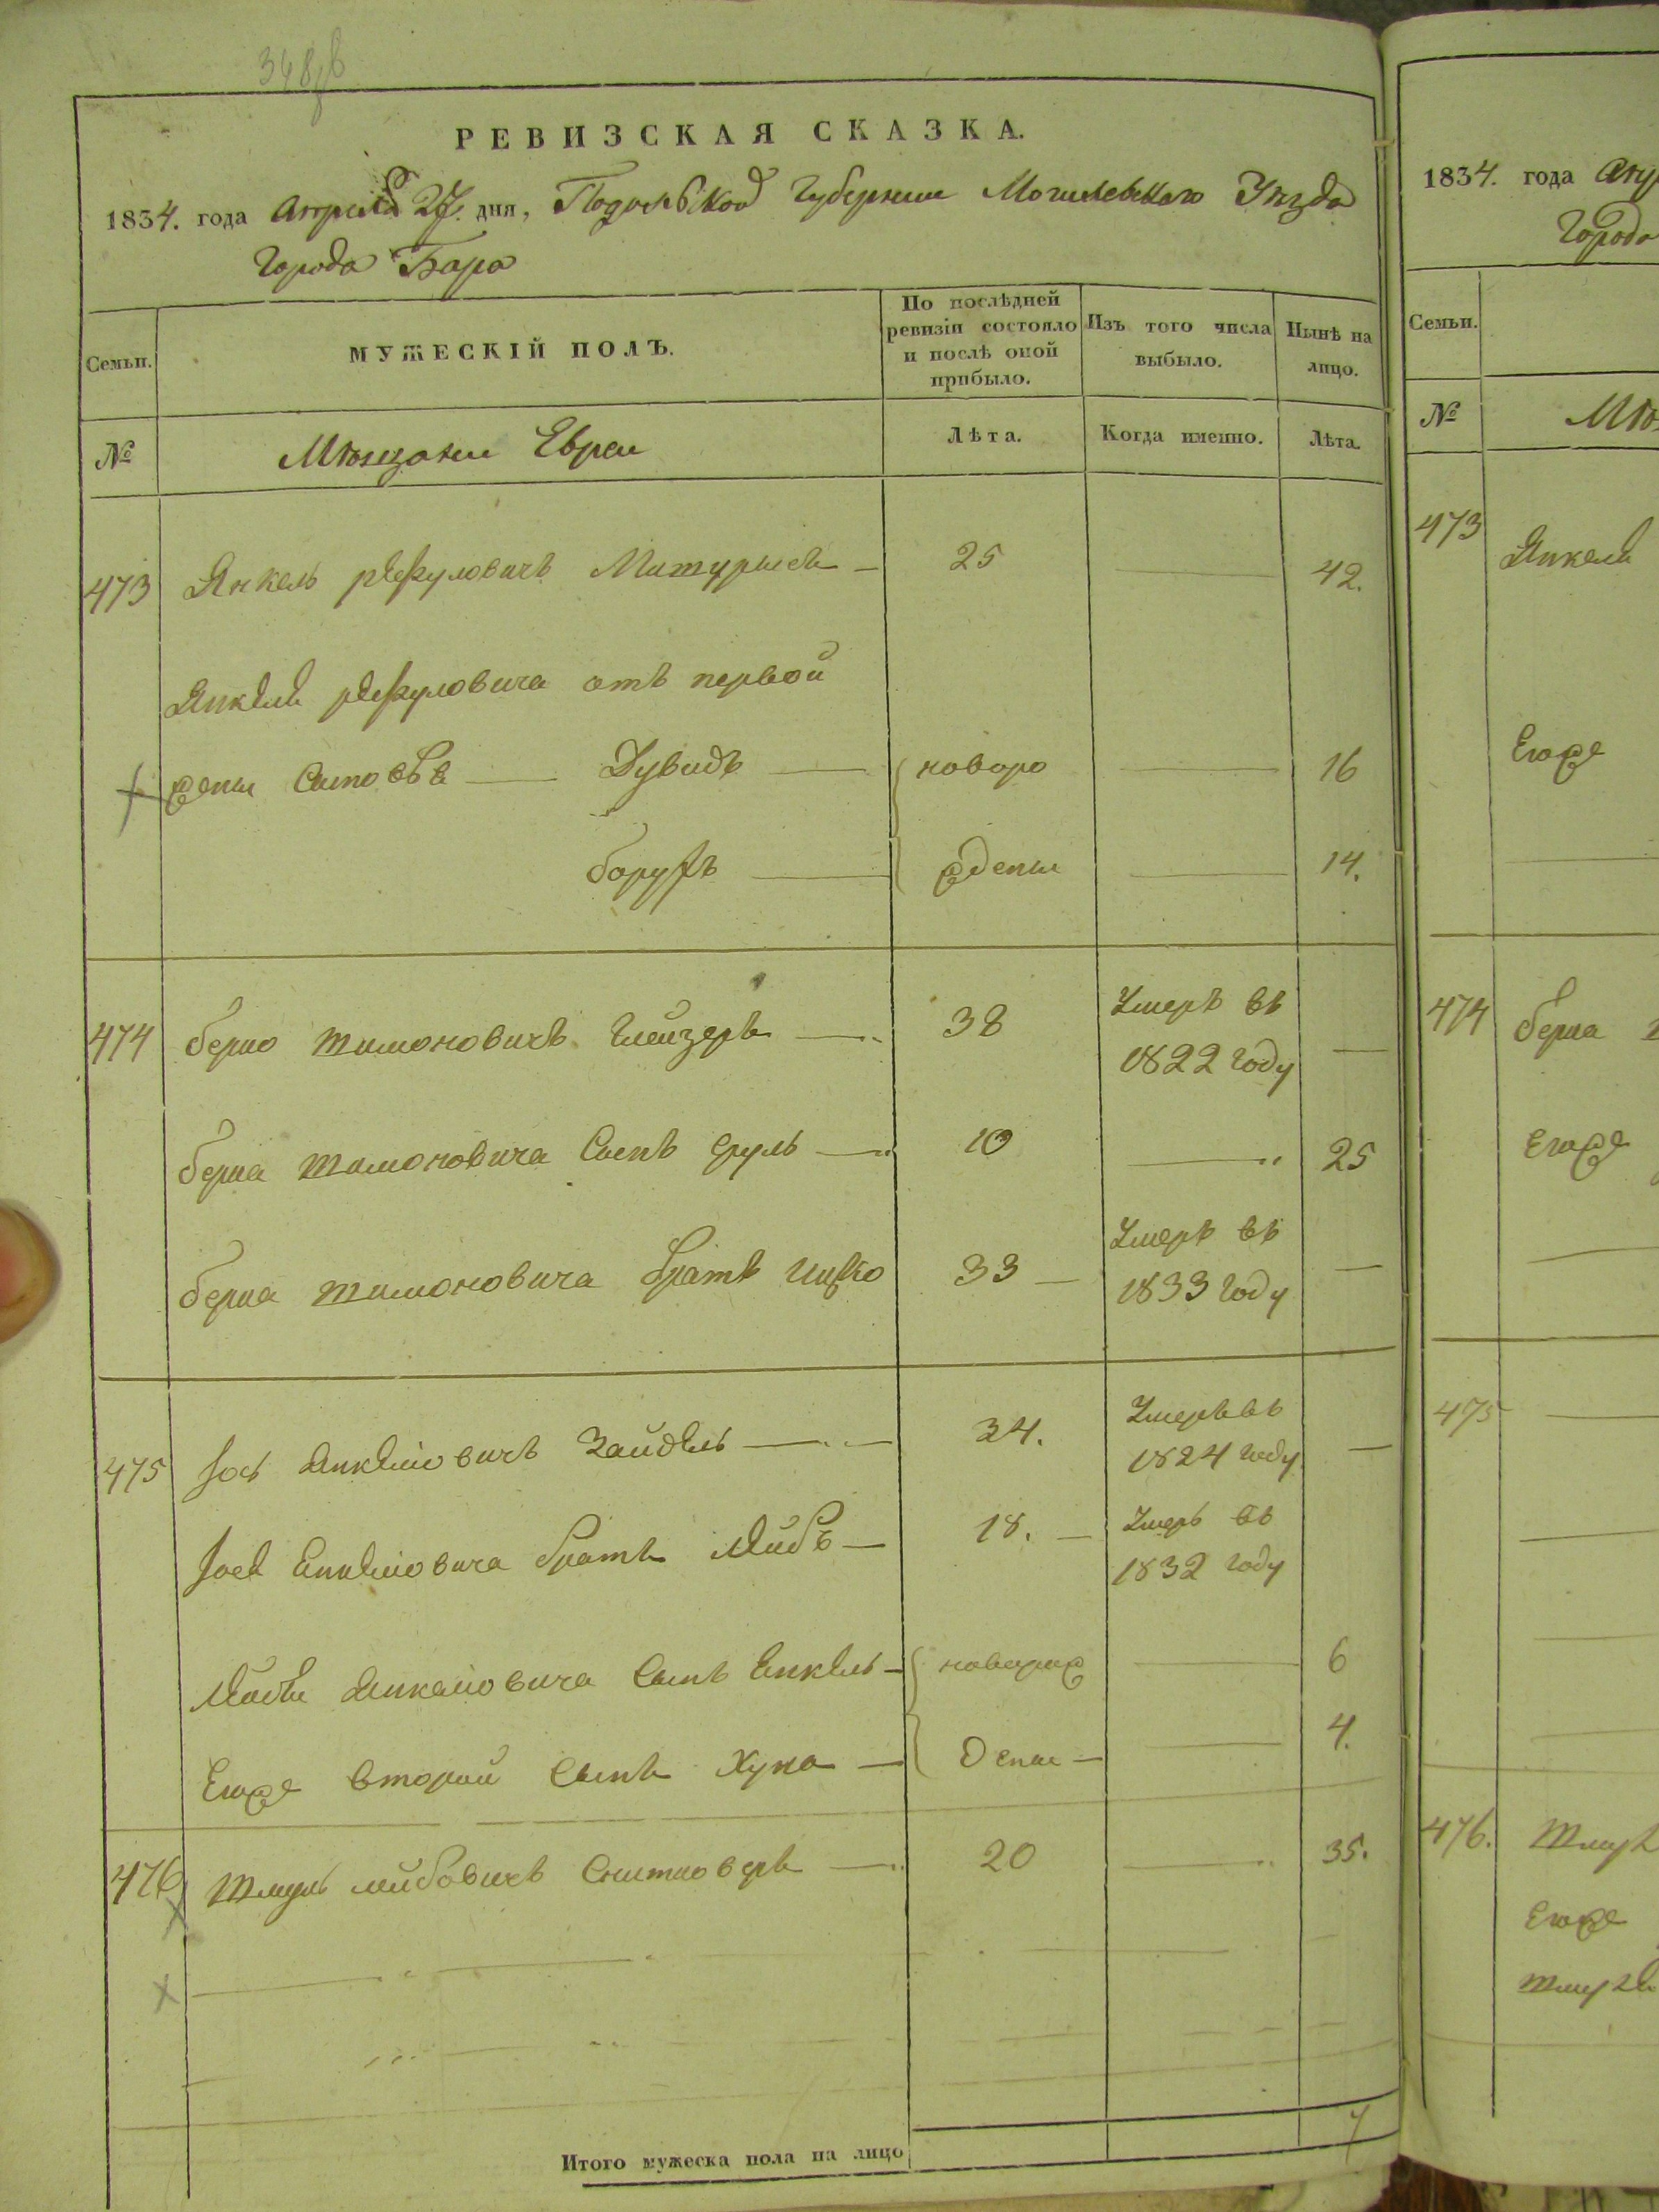 348 об
РЕВИЗСКАЯ СКАЗКА.
1834. года Апреля 27. дня, Подольской Губернии Могилевскаго Уезда
Города Бара
Семьи.
МУЖЕСКІЙ ПОЛЪ.
По послѣдней ревизіи состояло и послѣ оной прибыло.
Изъ того числа выбыло.
Нынѣ на лицо.
№
Мющане Евреи
Лѣта.
Когда именно.
Лѣта.
473 Янкель Рефуловичъ 25 — 42.
Янкеля Рефуловича отъ первой
жены Сыновья — Дувидъ — новоро — 16
борухъ — жденъ — 14.
474 берко шимоновичъ Глейзеръ — 38 Умеръ въ 1822 году —
берка шимоновича Сынъ Сруль — 10 — 25
берка шимоновича братъ Ицко 33 — Умеръ въ 1833 году —
475 Іось Янкелiовичъ Зайдель — 34. Умеръ въ 1824 году —
Іося Енкелiовича братъ Лейбъ — 18. — Умеръ въ 1832 году
Лейбы Янкелiовича Сынъ Енкель — новорож — 6
Егоже второй Сынъ Хуна — денъ — 4.
476 Шмуль лейбовичъ Снитковеръ — 20 — 35.
Итого мужеска пола на лицо 7
1834. года Апр
Города
Семьи.
№
Мю
473 Янкеля
Егоже
474 берка
Егоже
475
476. Шмул
Егоже